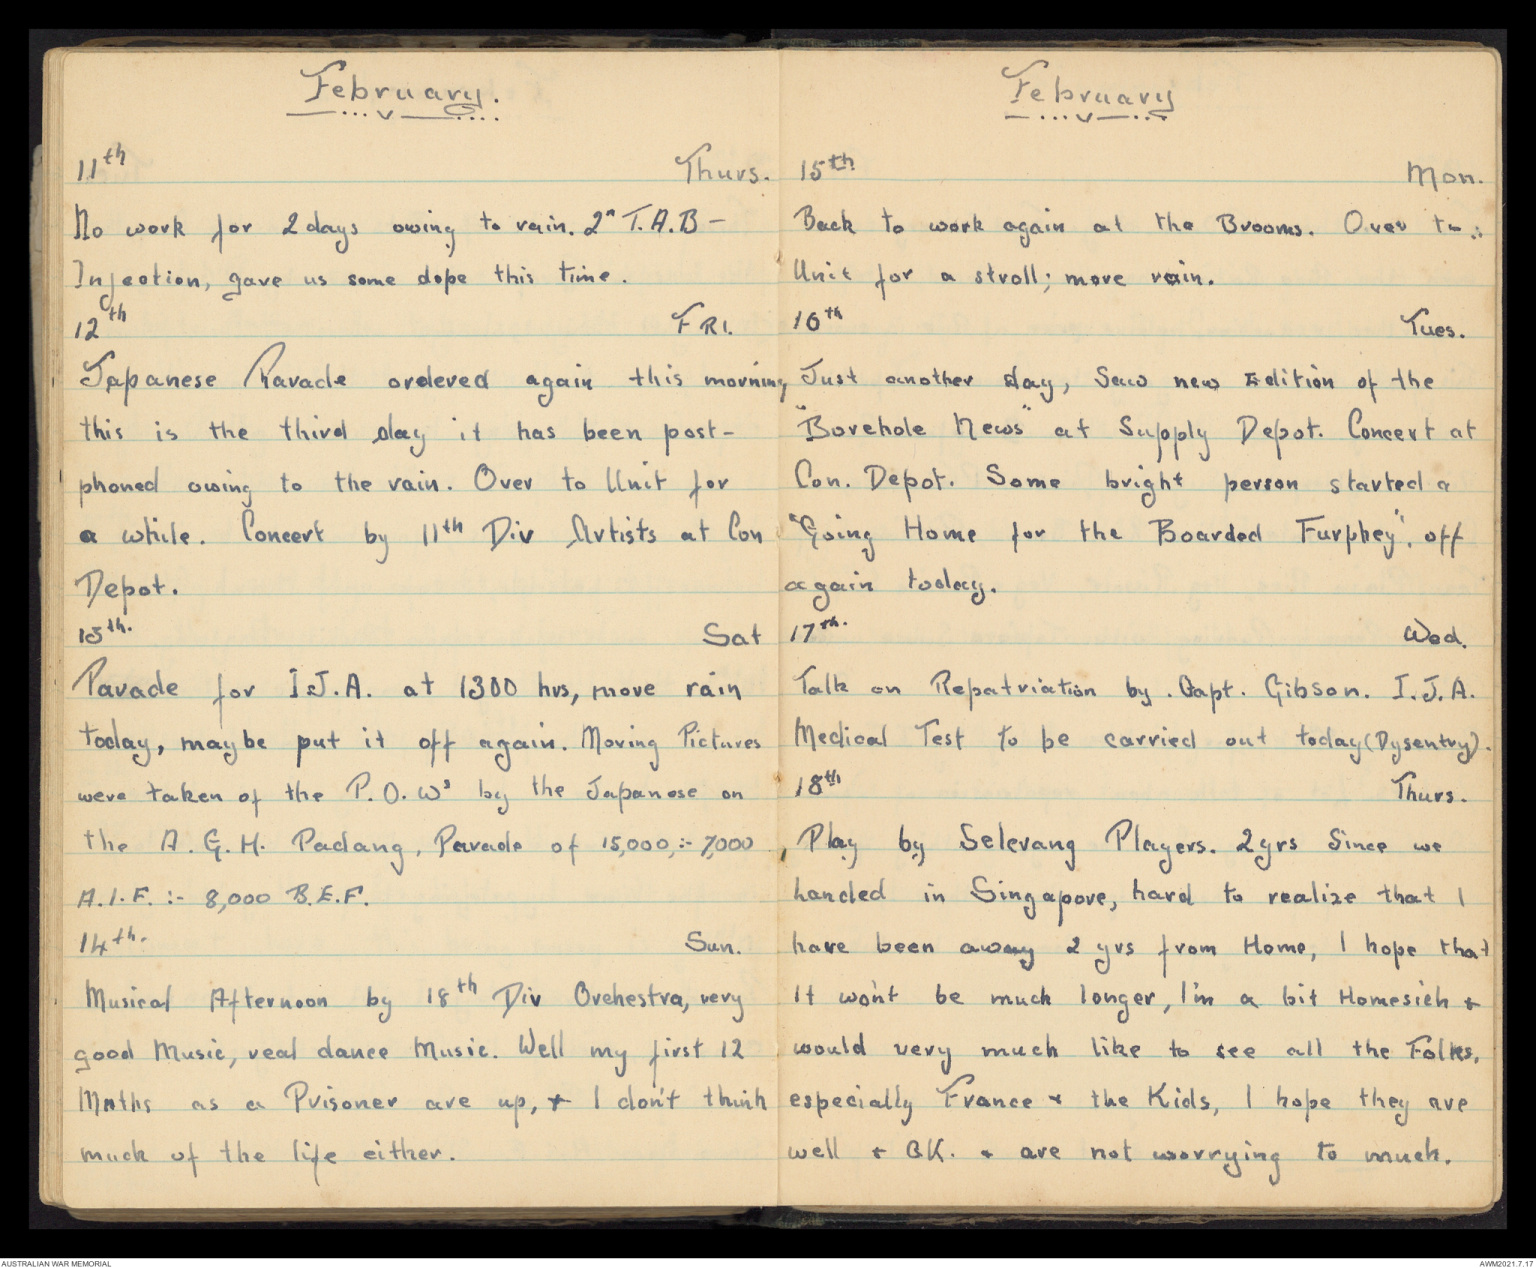 February.
11th Thurs.
No work for 2 days owing to rain. 2n T.A.B -
Injection, gave us some dope this time.
12th FRI.
Japanese Parade ordered again this morning
this is the third day it has been post-
phoned owing to the rain. Over to Unit for
a while. Concert by 11th Div Artists at Con
Depot.
13th. Sat
Parade for I.J.A. at 1300 hrs, more rain
today, maybe put it off again. Moving Pictures
were taken of the P.O.Ws by the Japanese on
the A.G.H. Padang, Parade of 15,000,:- 7,000
A.I.F. :- 8,000 B.E.F.
14th. Sun.
Musical Afternoon by 18th Div Orchestra, very
good Music, real dance Music. Well my first 12
Mnths as a Prisoner are up, + I don't think
much of the life either.
February
15th. Mon.
Back to work again at the Brooms. Over to
Unit for a stroll; more rain.
16th Tues.
Just another day, Saw new Edition of the
"Borehole News" at Supply Depot. Concert at
Con. Depot. Some bright person started a
"Going Home for the Boarded Furphey". off
again today.
17th. Wed.
Talk on Repatriation by Capt. Gibson. I.J.A.
Medical Test to be carried out today (Dysentry).
18th Thurs.
Play by Selerang Players. 2 yrs Since we
landed in Singapore, hard to realize that I
have been away 2 yrs from Home, I hope that
It won't be much longer, I'm a bit Homesick +
would very much like to see all the Folks,
especially France + the Kids, I hope they are
well + OK. + are not worrying to much.
AUSTRALIAN WAR MEMORIAL AWM2021.7.17